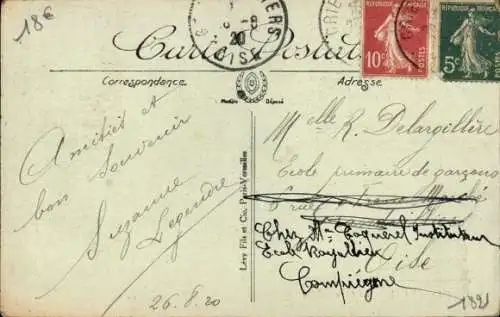 18€
Carte Postale
Correspondance
Adresse
10c
5c
20
OISE
Modèle Déposé
Lévy Fils et Cie, Paris-Versailles
Amitiés et
bon souvenir
Suzanne
Legendre
26.8.20
Melle R. Delargillère
Ecole primaire de garçons
Chez Mr Coquerel Instituteur
Oise
Compiègne
1821